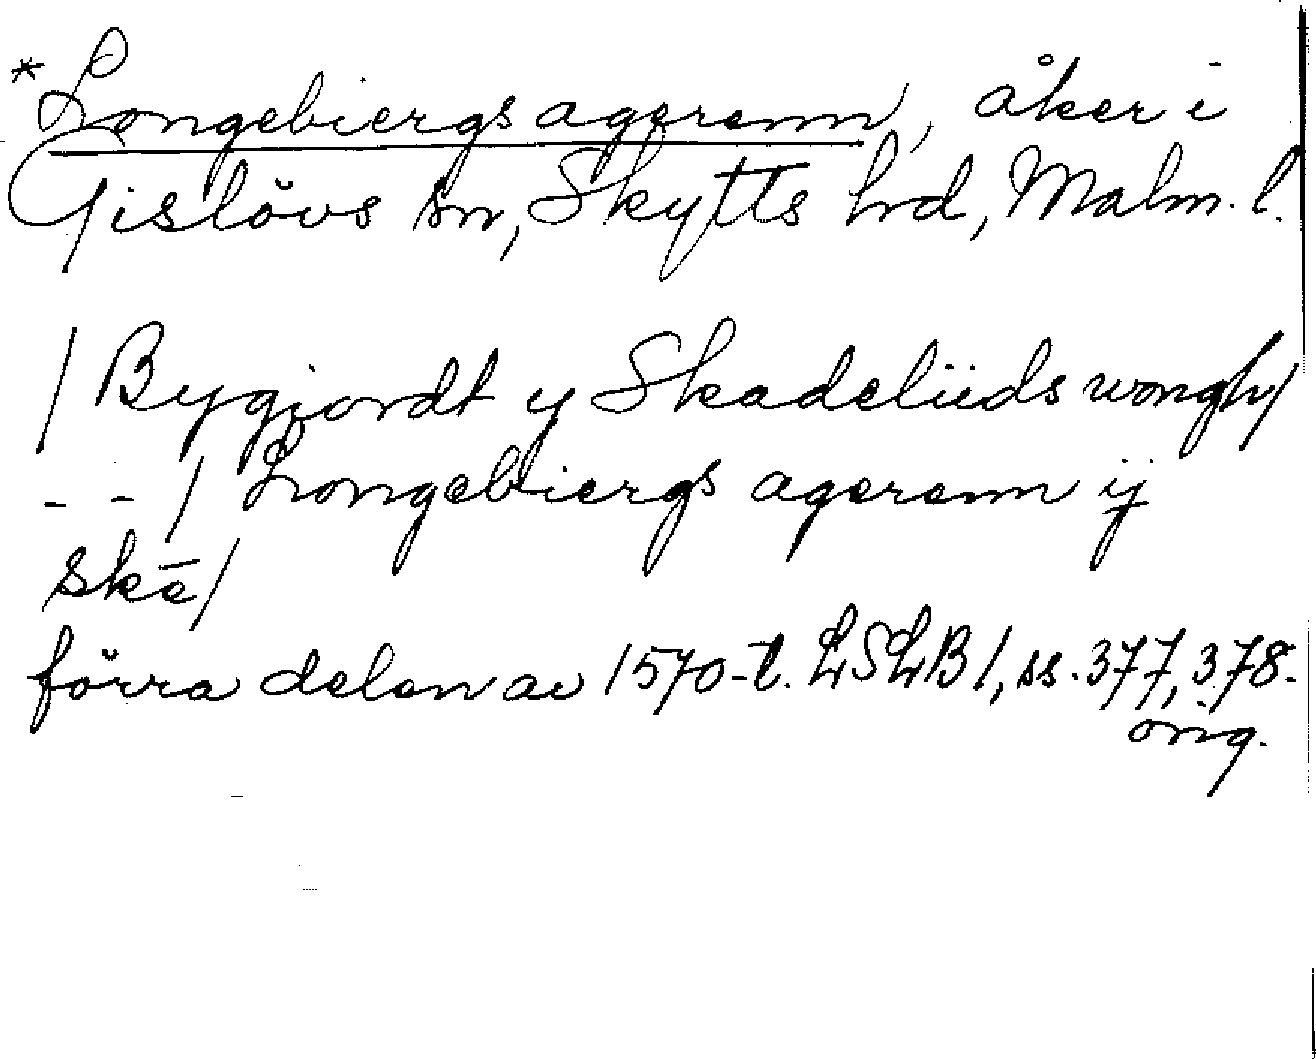 *Longebiergs agerenn, åker i
Gislövs sn, Skytts hrd, Malm. l.
/ Bygjordt y Skadeliids wongh/
- - / Longebiergs agerenn ij
skē/
förra delen av 1570-t. LSLB 1, ss. 377, 378.
orig.